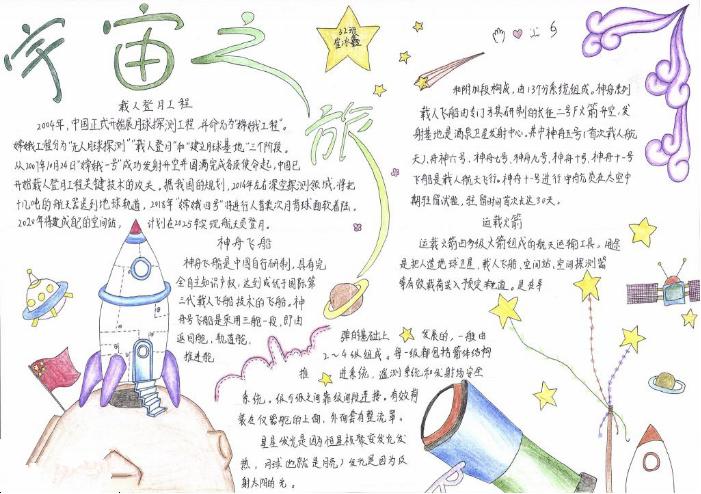 宇宙之旅
载人登月工程
2004年，中国正式开始展月球探测工程，并命为为"嫦娥工程"。
嫦娥工程分为"无人月球探测""载人登月"和"建立月球基地"三个阶段。
从2007年10月24日"嫦娥一号"成功发射升空并圆满完成各项使命起，中国已
开始载人登月工程关键技术的攻关。据我国的规划，2016年左右深空探测领域，将把
十几吨的航天器送到地球轨道，2018年"嫦娥四号"将进行人首类次月背球面软着陆。
2020年将建成配的空间站，计划在2025年实现航天员登月。
神舟飞船
神舟飞船是中国自行研制，具有完
全自主知识产权，达到或优于国际第
三代载人飞船技术的飞船。神
舟号飞船是采用三舱一段，即由
返回舱，轨道舱，
推进舱
和附加段构成，由13个分系统组成。神舟系列
载人飞船由专门为其研制的长征二号F火箭升空，发
射基地是酒泉卫星发射中心。其中神舟五号（首次载人航
天）、神舟六号、神舟七号、神舟九号、神舟十号、神舟十一号
飞船是载人航天飞行。神舟十一号进行宇航员在太空中
期驻留试验，驻留时间首次长达30天。
运载火箭
运载火箭由多级火箭组成的航天运输工具。用途
是把人造地球卫星、载人飞船、空间站、空间探测器
等有效载荷送入预定轨道。是在导
弹的基础上发展的，一般由
2～4级组成。每一级都包括箭体结构
推进系统，遥测系统和发射场安全
系统。级与级之间靠级间段连接。有效荷
载在仪器舱的上面，外面套有整流罩。
星星发光是因为恒星核聚变发光发
热，月球（也就是月亮）发光是因为反
射太阳的光。